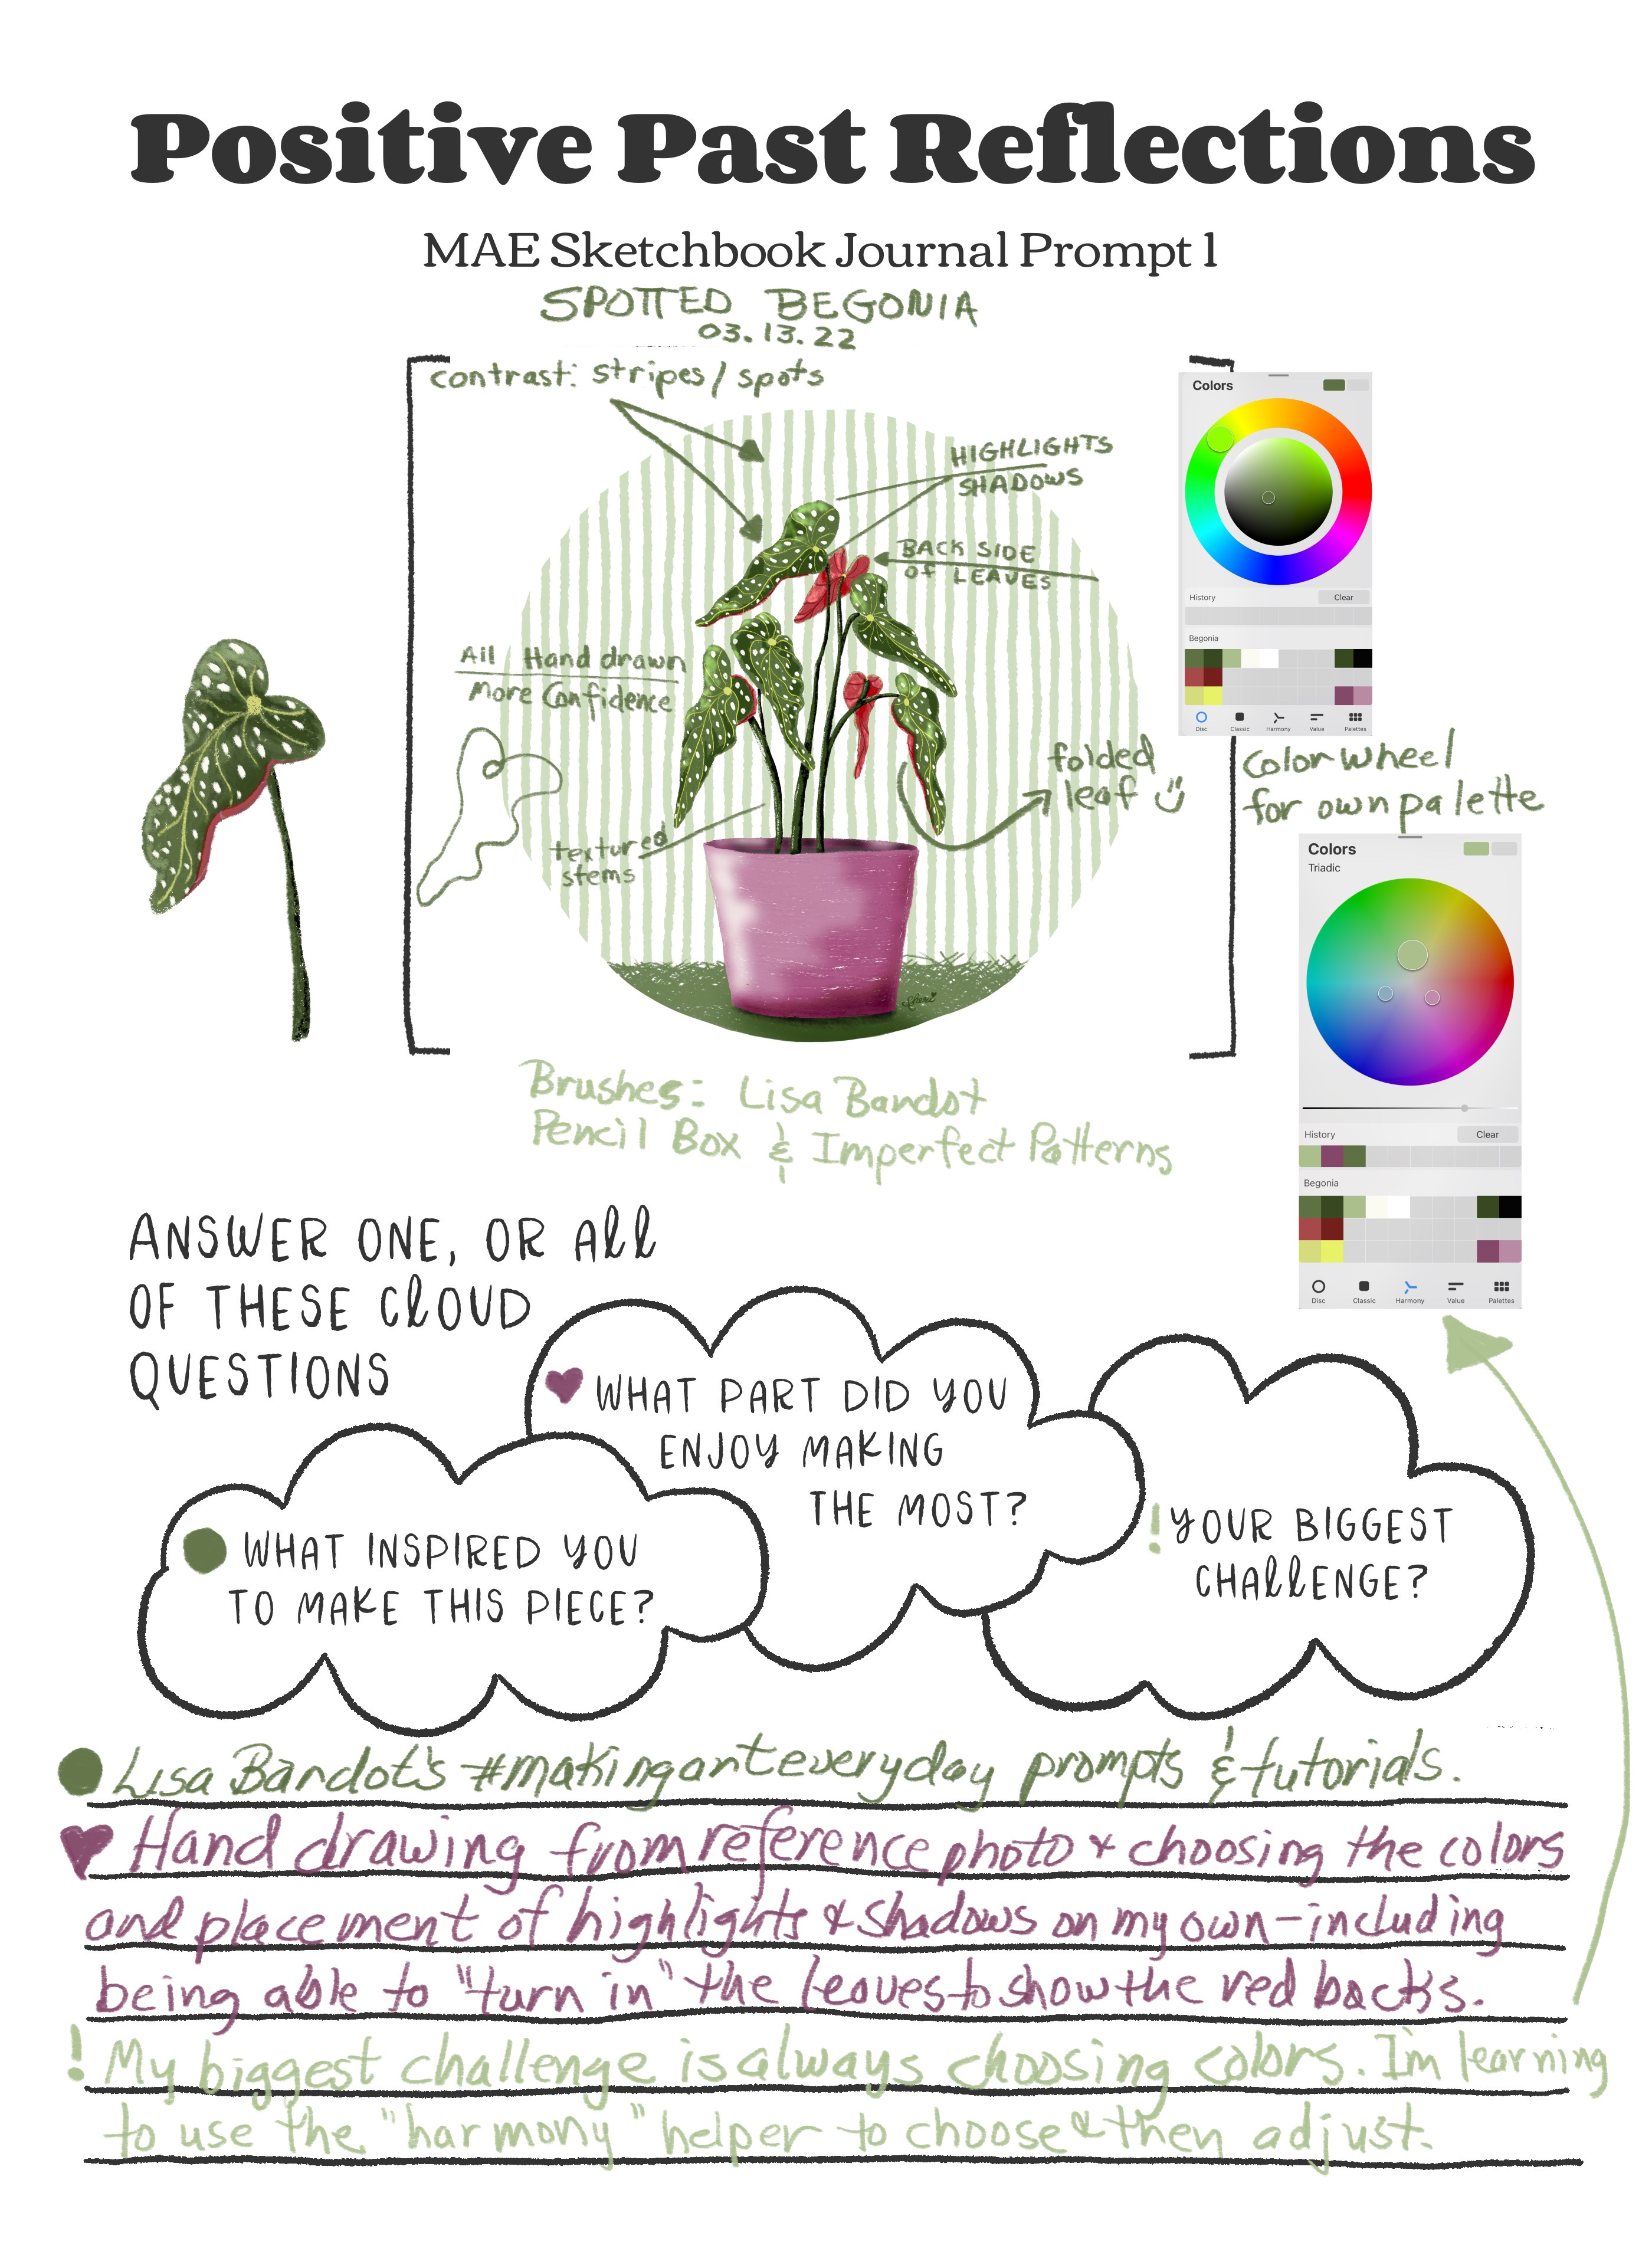 Positive Past Reflections
MAE Sketchbook Journal Prompt 1
SPOTTED BEGONIA
03.13.22
contrast: stripes/spots
HIGHLIGHTS
SHADOWS
BACK SIDE
OF LEAVES
All Hand drawn
More Confidence
textured
stems
folded
leaf
Colors
History
Clear
Begonia
Disc Classic Harmony Value Palettes
Color wheel
for own palette
Colors
Triadic
History
Clear
Begonia
Disc Classic Harmony Value Palettes
Brushes: Lisa Bardot
Pencil Box & Imperfect Patterns
ANSWER ONE, OR All
OF THESE ClOUD
QUESTIONS
WHAT PART DID YOU
ENJOY MAKING
THE MOST?
WHAT INSPIRED YOU
TO MAKE THIS PIECE?
! YOUR BIGGEST
CHAllENGE?
Lisa Bardot's #makingarteveryday prompts & tutorials.
Hand drawing from reference photo & choosing the colors
and placement of highlights & shadows on my own - including
being able to "turn in" the leaves to show the red backs.
! My biggest challenge is always choosing colors. I'm learning
to use the "harmony" helper to choose & then adjust.